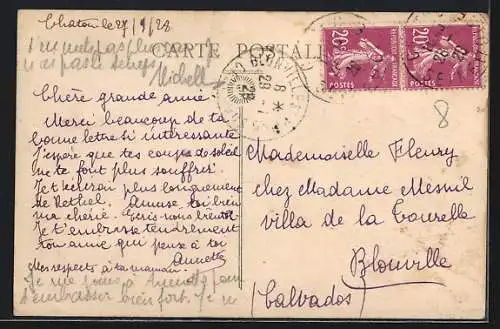 Chatou le 27/9/28
CARTE POSTALE
Michell
Chère grande amie.
Merci beaucoup de ta
bonne lettre si intéressante
J'espère que tes coups de soleil
ne te font plus souffrir.
Je t'écrirai plus longuement
de Rethel. Amuse toi bien
ma chérie. Écris-nous bientôt
Je t'embrasse tendrement
Ton amie qui pense à toi
Annette
Mes respects à ta maman.
Je me joins à Annette pour
t'embrasser bien fort.
20c 20c
POSTES POSTES
BLONVILLE
8
Mademoiselle Fleury
chez Madame Mesnil
villa de la Tourelle
Blonville
(Calvados)